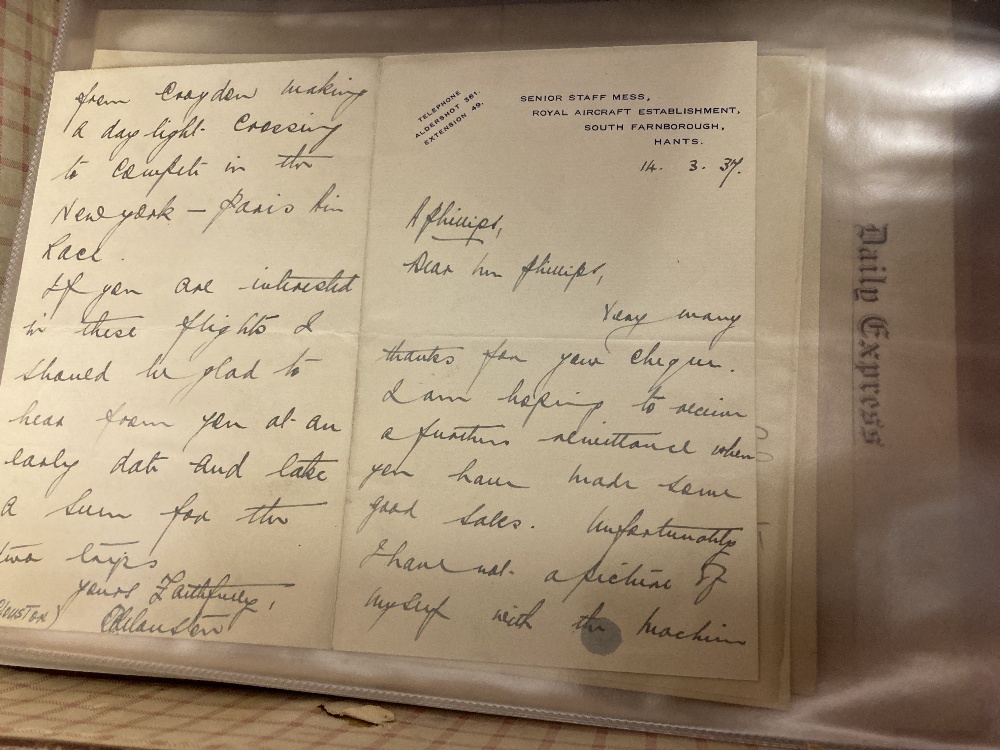 TELEPHONE
ALDERSHOT 381.
EXTENSION 49.
SENIOR STAFF MESS,
ROYAL AIRCRAFT ESTABLISHMENT,
SOUTH FARNBOROUGH,
HANTS.
14. 3. 37.
A Phillips,
Dear Mr Phillips,
Very many
thanks for your cheque.
I am hoping to receive
a further remittance when
you have made some
good sales. Unfortunately
I have not a picture of
myself with the machine
from Croydon making
a daylight crossing
to compete in the
New york - Paris Air
Race.
If you are interested
in these flights I
should be glad to
hear from you at an
early date and take
a sum for the
two trips
yours Faithfully,
Clouston
(CLOUSTON)
Daily Express